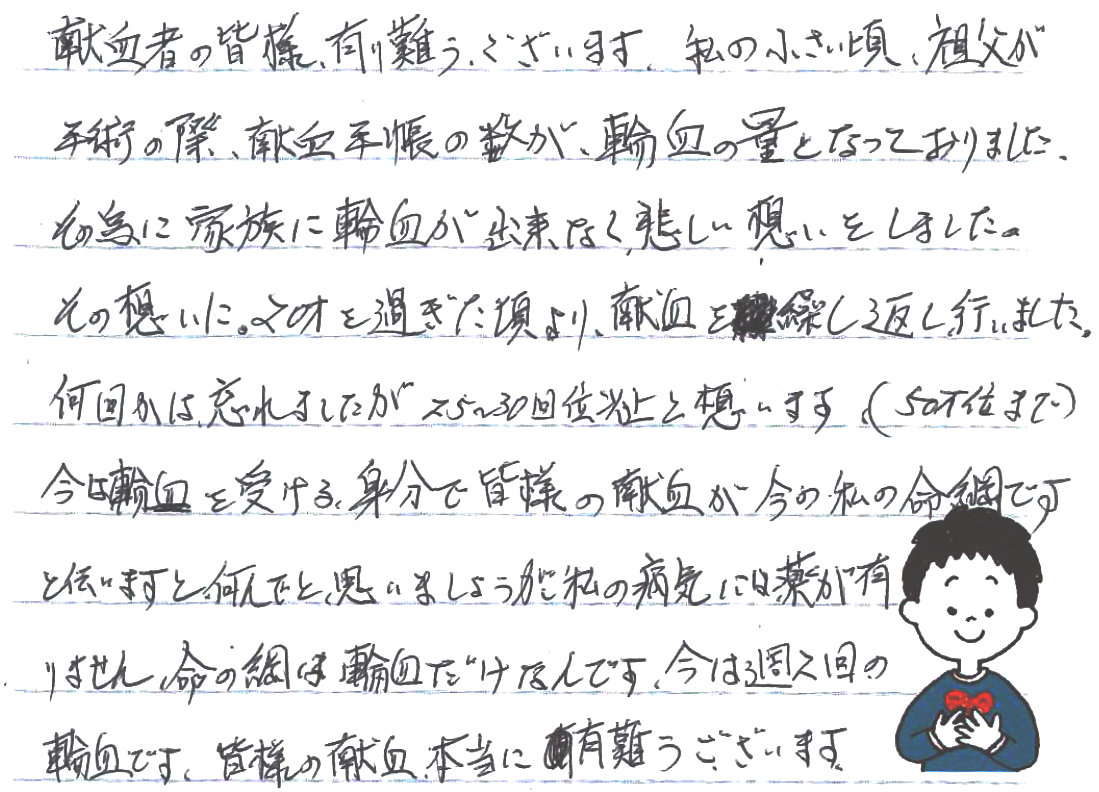 献血者の皆様、有り難う、ございます。私の小さい頃、祖父が
手術の際、献血手帳の数が、輸血の量となっておりました、
その為に家族に輸血が出来なく悲しい想いをしました。
その想いに。20才を過ぎた頃より、献血を繰り返し行いました。
何回かは、忘れましたが25～30回位以上と想います、(50才位まで)
今は輸血を受ける、身分で皆様の献血が今の私の命綱です
と伝いますと、何んでと、思いましょうが、私の病気には薬が有
りません、命の綱は輸血だけなんです、今は週2回の
輸血です、皆様の献血、本当に有難うございます。